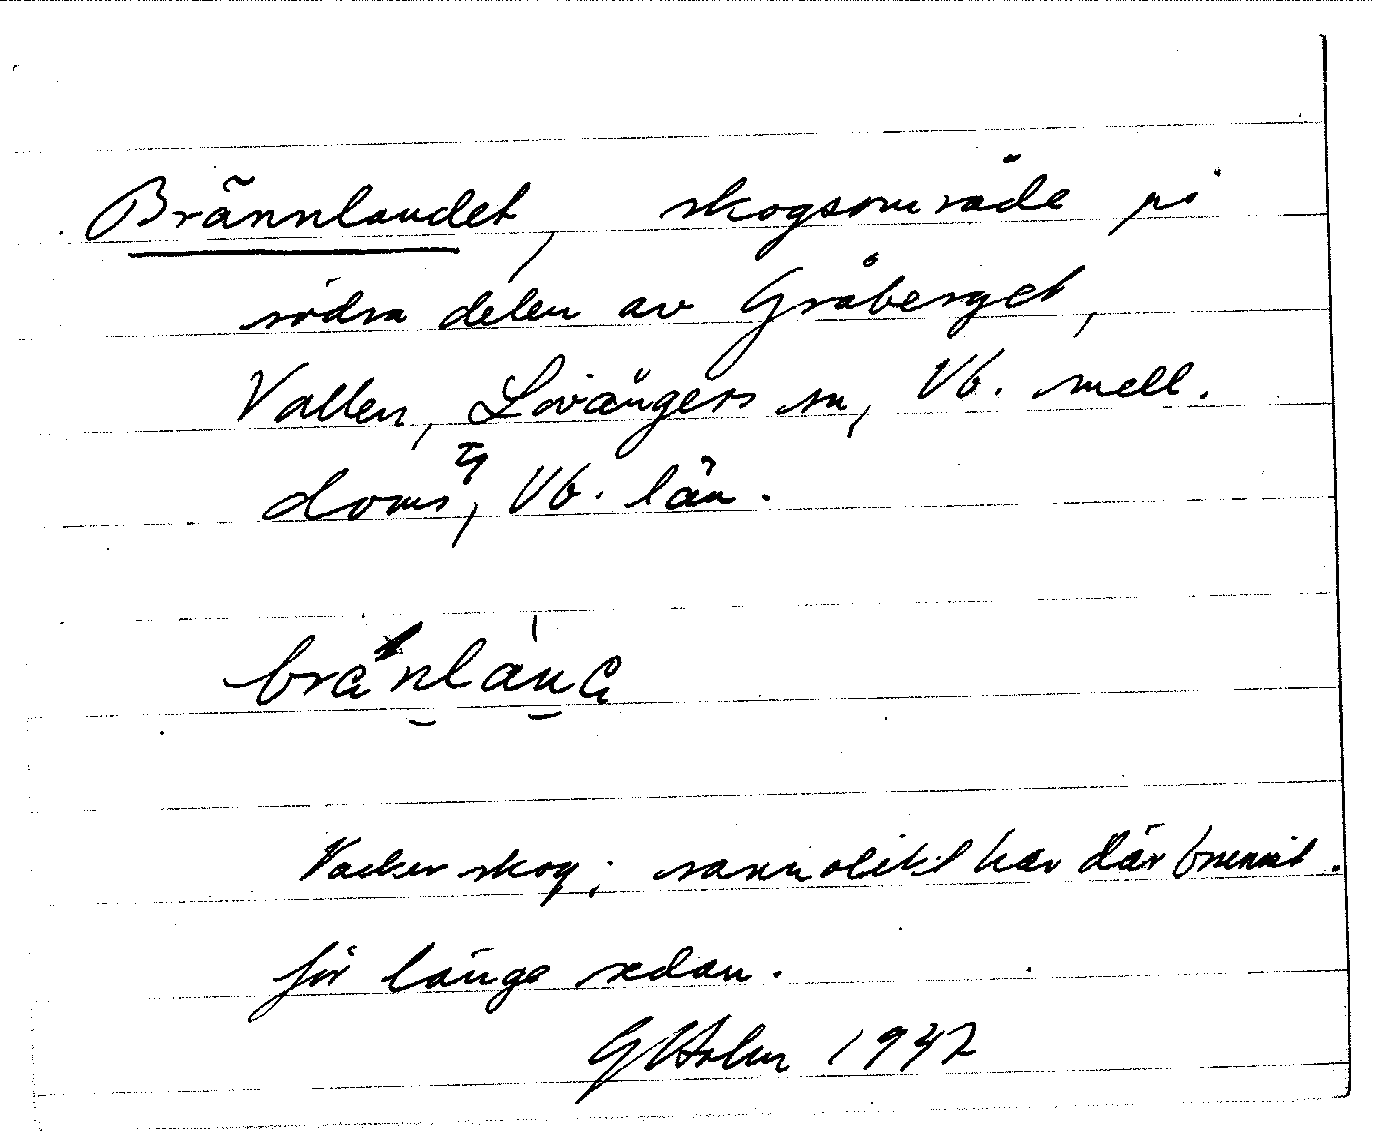 Brännlandet, skogsområde på
södra delen av Gråberget,
Vallen, Lövångers sn, Vb. mell.
doms, Vb. län.
Vacker skog; sannolikt har där brunnit
för länge sedan.
G Holm 1947